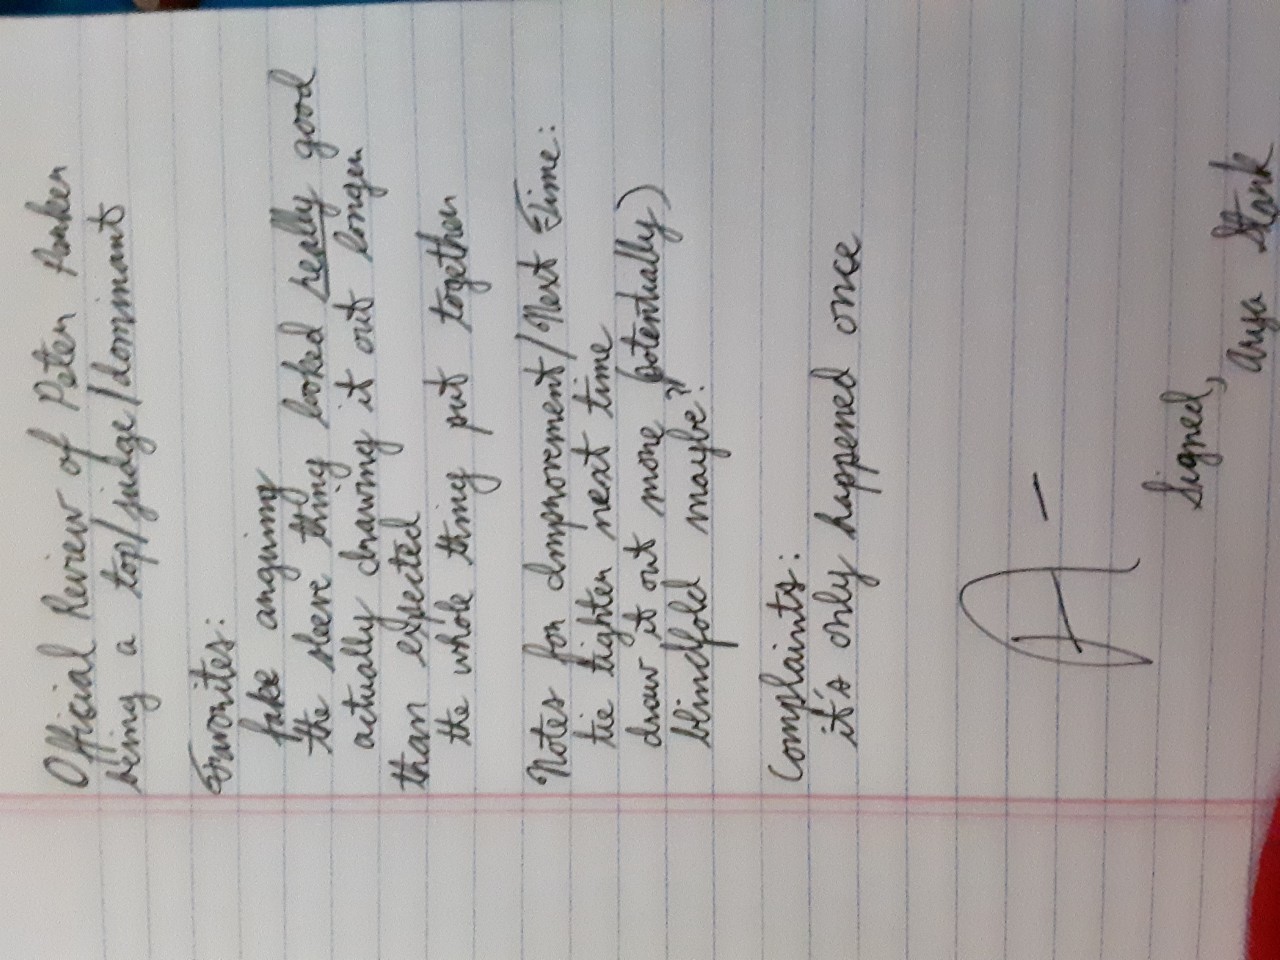 Official Review of Peter Parker
being a top/judge/dominant
Favorites:
fake arguing
the sleeve thing looked really good
actually drawing it out longer
than expected
the whole thing put together
Notes for Improvement/Next Time:
tie tighter next time
draw it out more (potentially)
blindfold maybe?
Complaints:
it's only happened once
A-
Signed,
Arya Stark